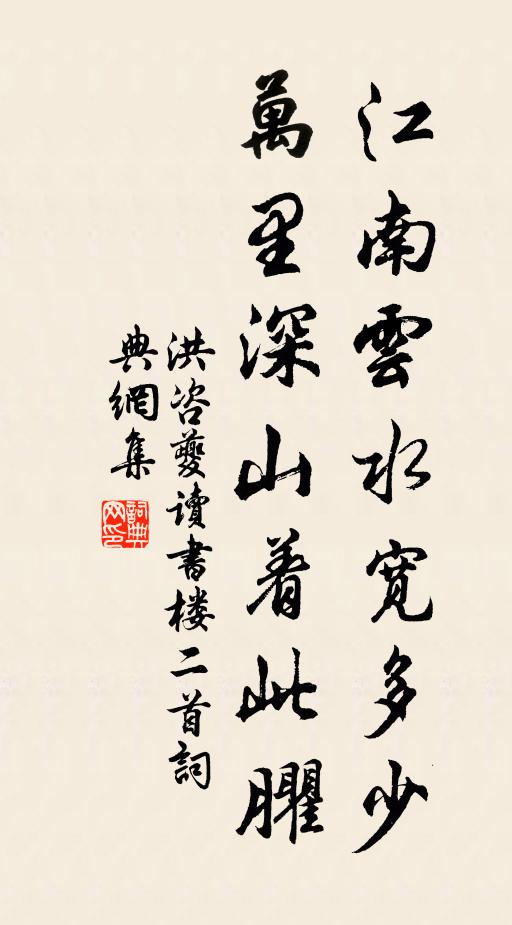 江南雲水寬多少
萬里深山着此臞
洪咨夔讀書樓二首詞
典網集
詞典
网印